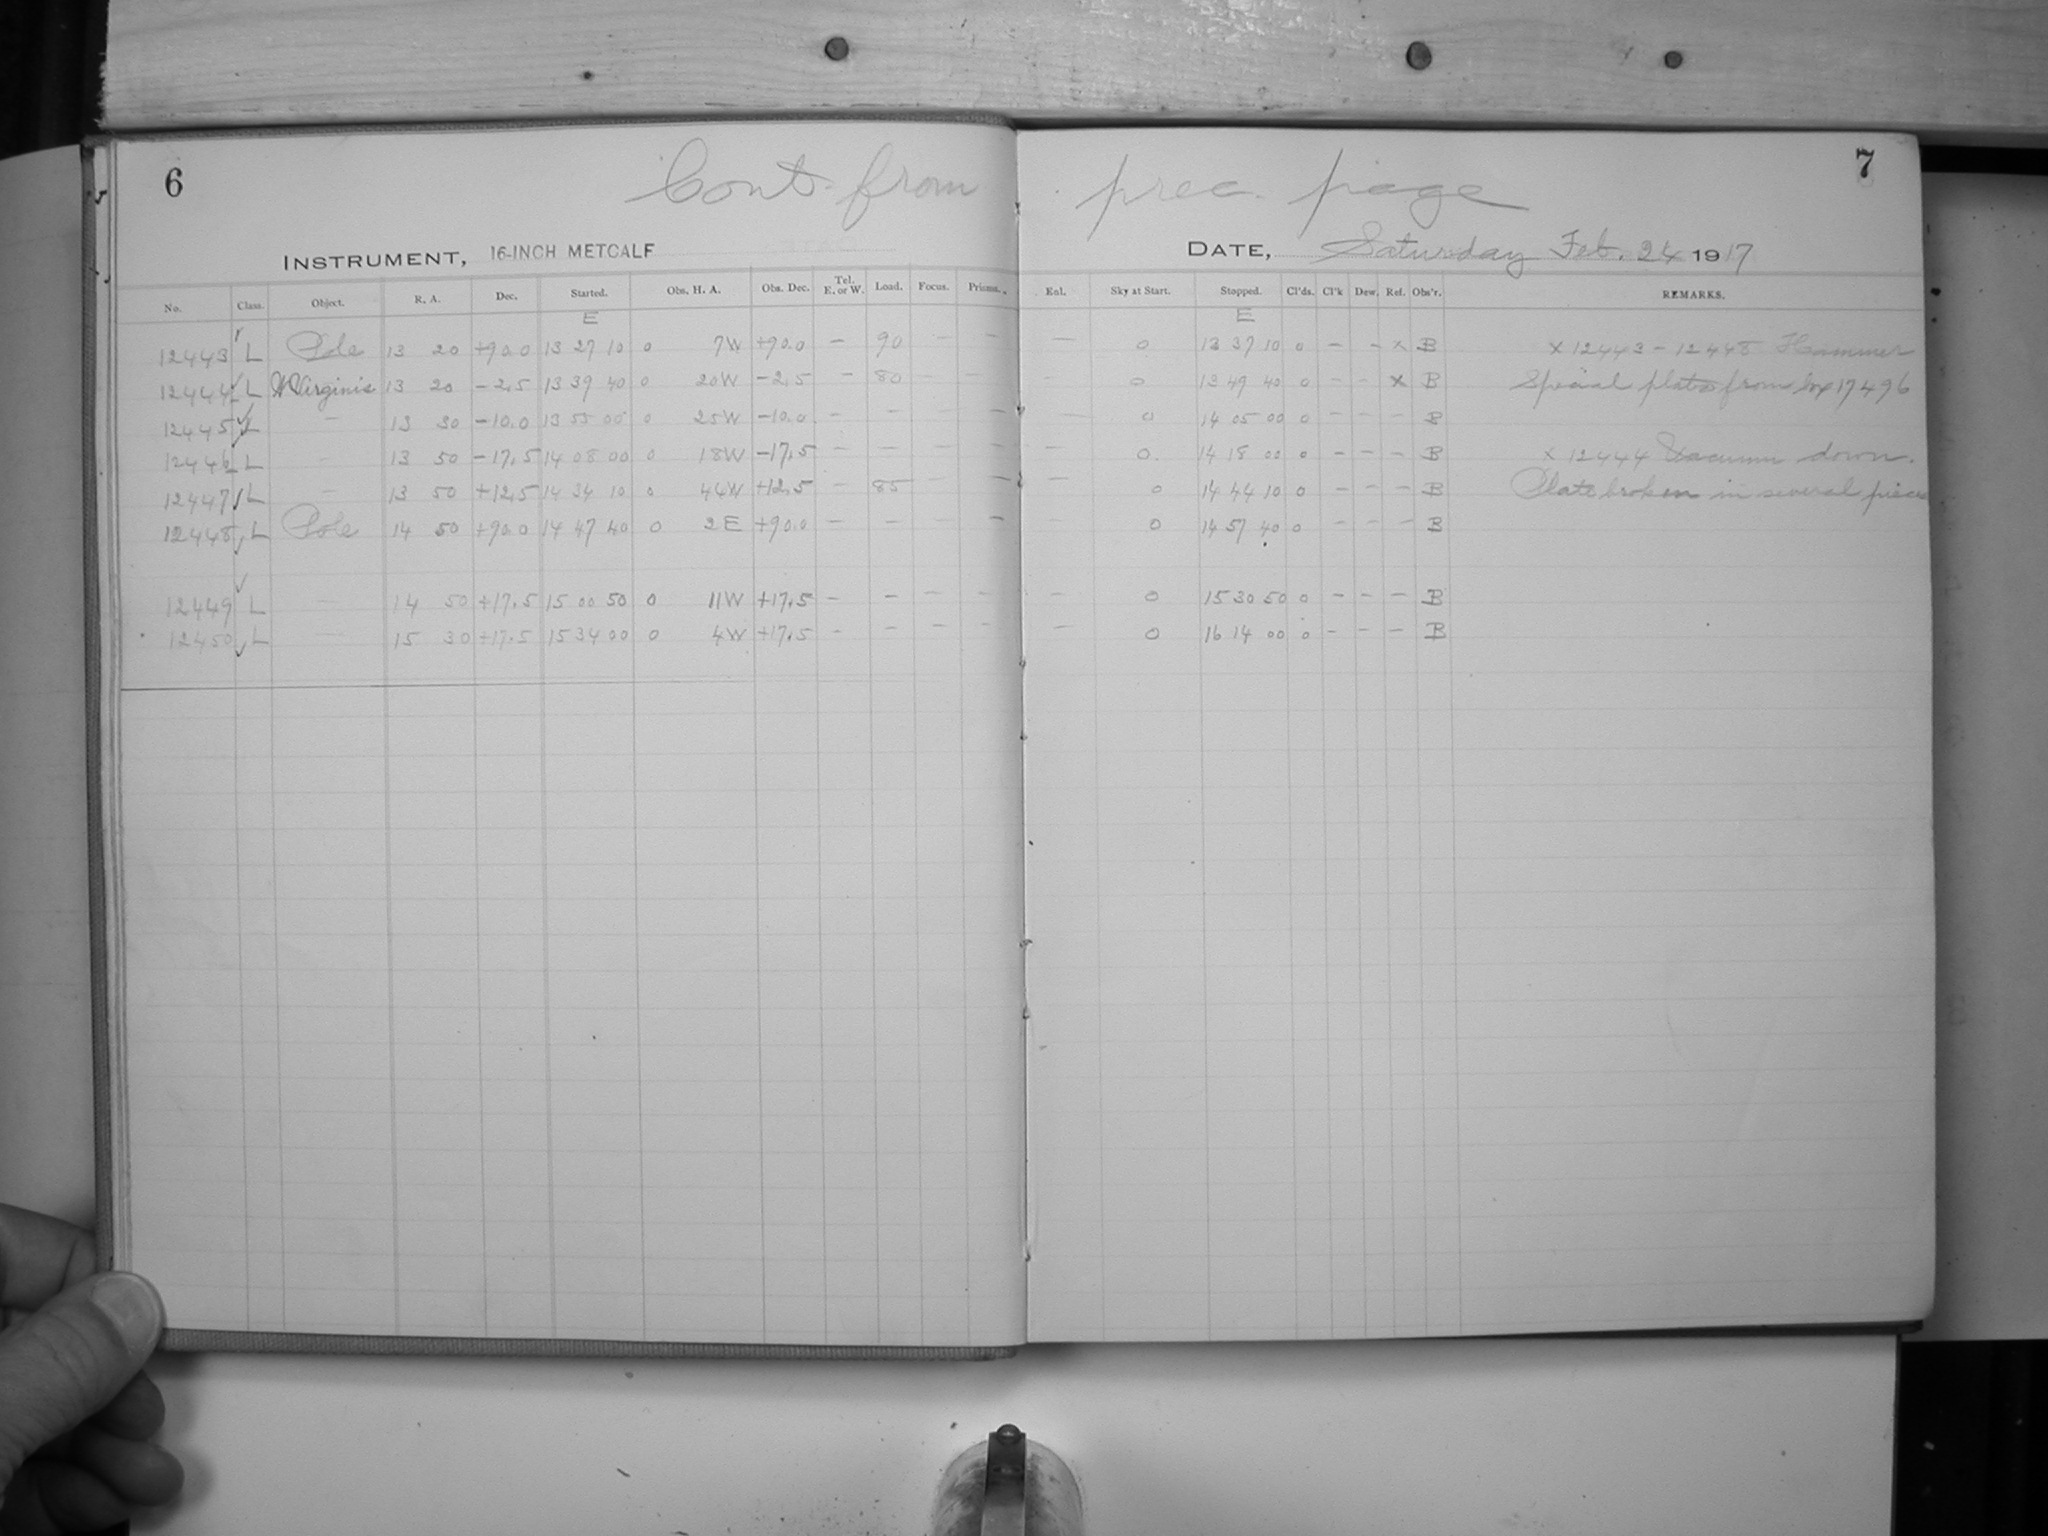 6
Cont. from prec. page
7
INSTRUMENT, 16-INCH METCALF
DATE, Saturday Feb. 24 1917
No. Class. Object. R. A. Dec. Started. Obs. H. A. Obs. Dec. Tel. E. or W. Load. Focus. Prisms. Enl. Sky at Start. Stopped. Cl'ds. Cl'k Dew. Ref. Obs'r. REMARKS.
E E
12443 L Pole 13 20 +90.0 13 27 10 0 7W +90.0 – 90 – – – 0 13 37 10 0 – – x B x 12443 – 12448 Hammer
12444 L W Virginis 13 20 –2.5 13 39 40 0 20W –2.5 – 80 – – – 0 13 49 40 0 – – x B Special plates from box 17496
12445 L – 13 30 –10.0 13 55 00 0 25W –10.0 – – – – – 0 14 05 00 0 – – – B
12446 L – 13 50 –17.5 14 08 00 0 18W –17.5 – – – – – 0. 14 18 00 0 – – – B x 12444 Vacuum down.
12447 L – 13 50 +12.5 14 34 10 0 44W +12.5 – 85 – – – 0 14 44 10 0 – – – B Plate broken in several pieces
12448 L Pole 14 50 +90.0 14 47 40 0 2E +90.0 – – – – – 0 14 57 40 0 – – – B
12449 L – 14 50 +17.5 15 00 50 0 11W +17.5 – – – – – 0 15 30 50 0 – – – B
12450 L – 15 30 +17.5 15 34 00 0 4W +17.5 – – – – – 0 16 14 00 0 – – – B